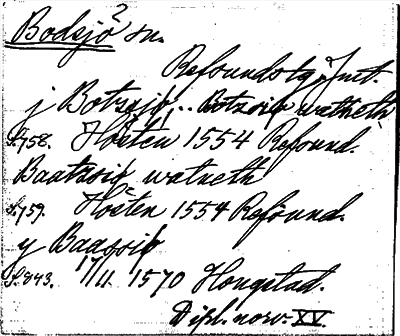 Bodsjö² sn.
Refsundstg. Jmt.
j Botzsiþ, .. Botzsiþ watneth
S.758. Hösten 1554 Refsund.
Baatzsiþ watneth
S.759. Hösten 1554 Refsund.
y Baassiþ
S.843. 17/11 1570 Hougstad.
Dipl. norv. XV.